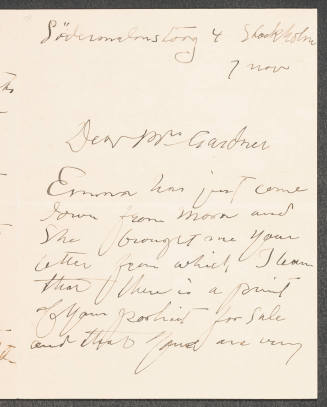 Södermalmstorg 4 Stockholm
7 nov
Dear Mrs Gardner
Emma has just come
down from Mora and
she brought me your
letter from which I learn
that there is a print
of your portrait for sale
and that you are very